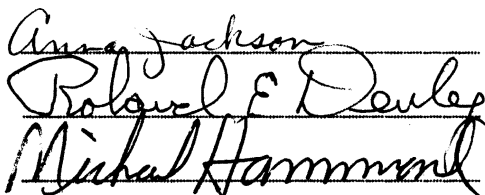 Anna Jackson
Roland E Denley
Michael Hammond